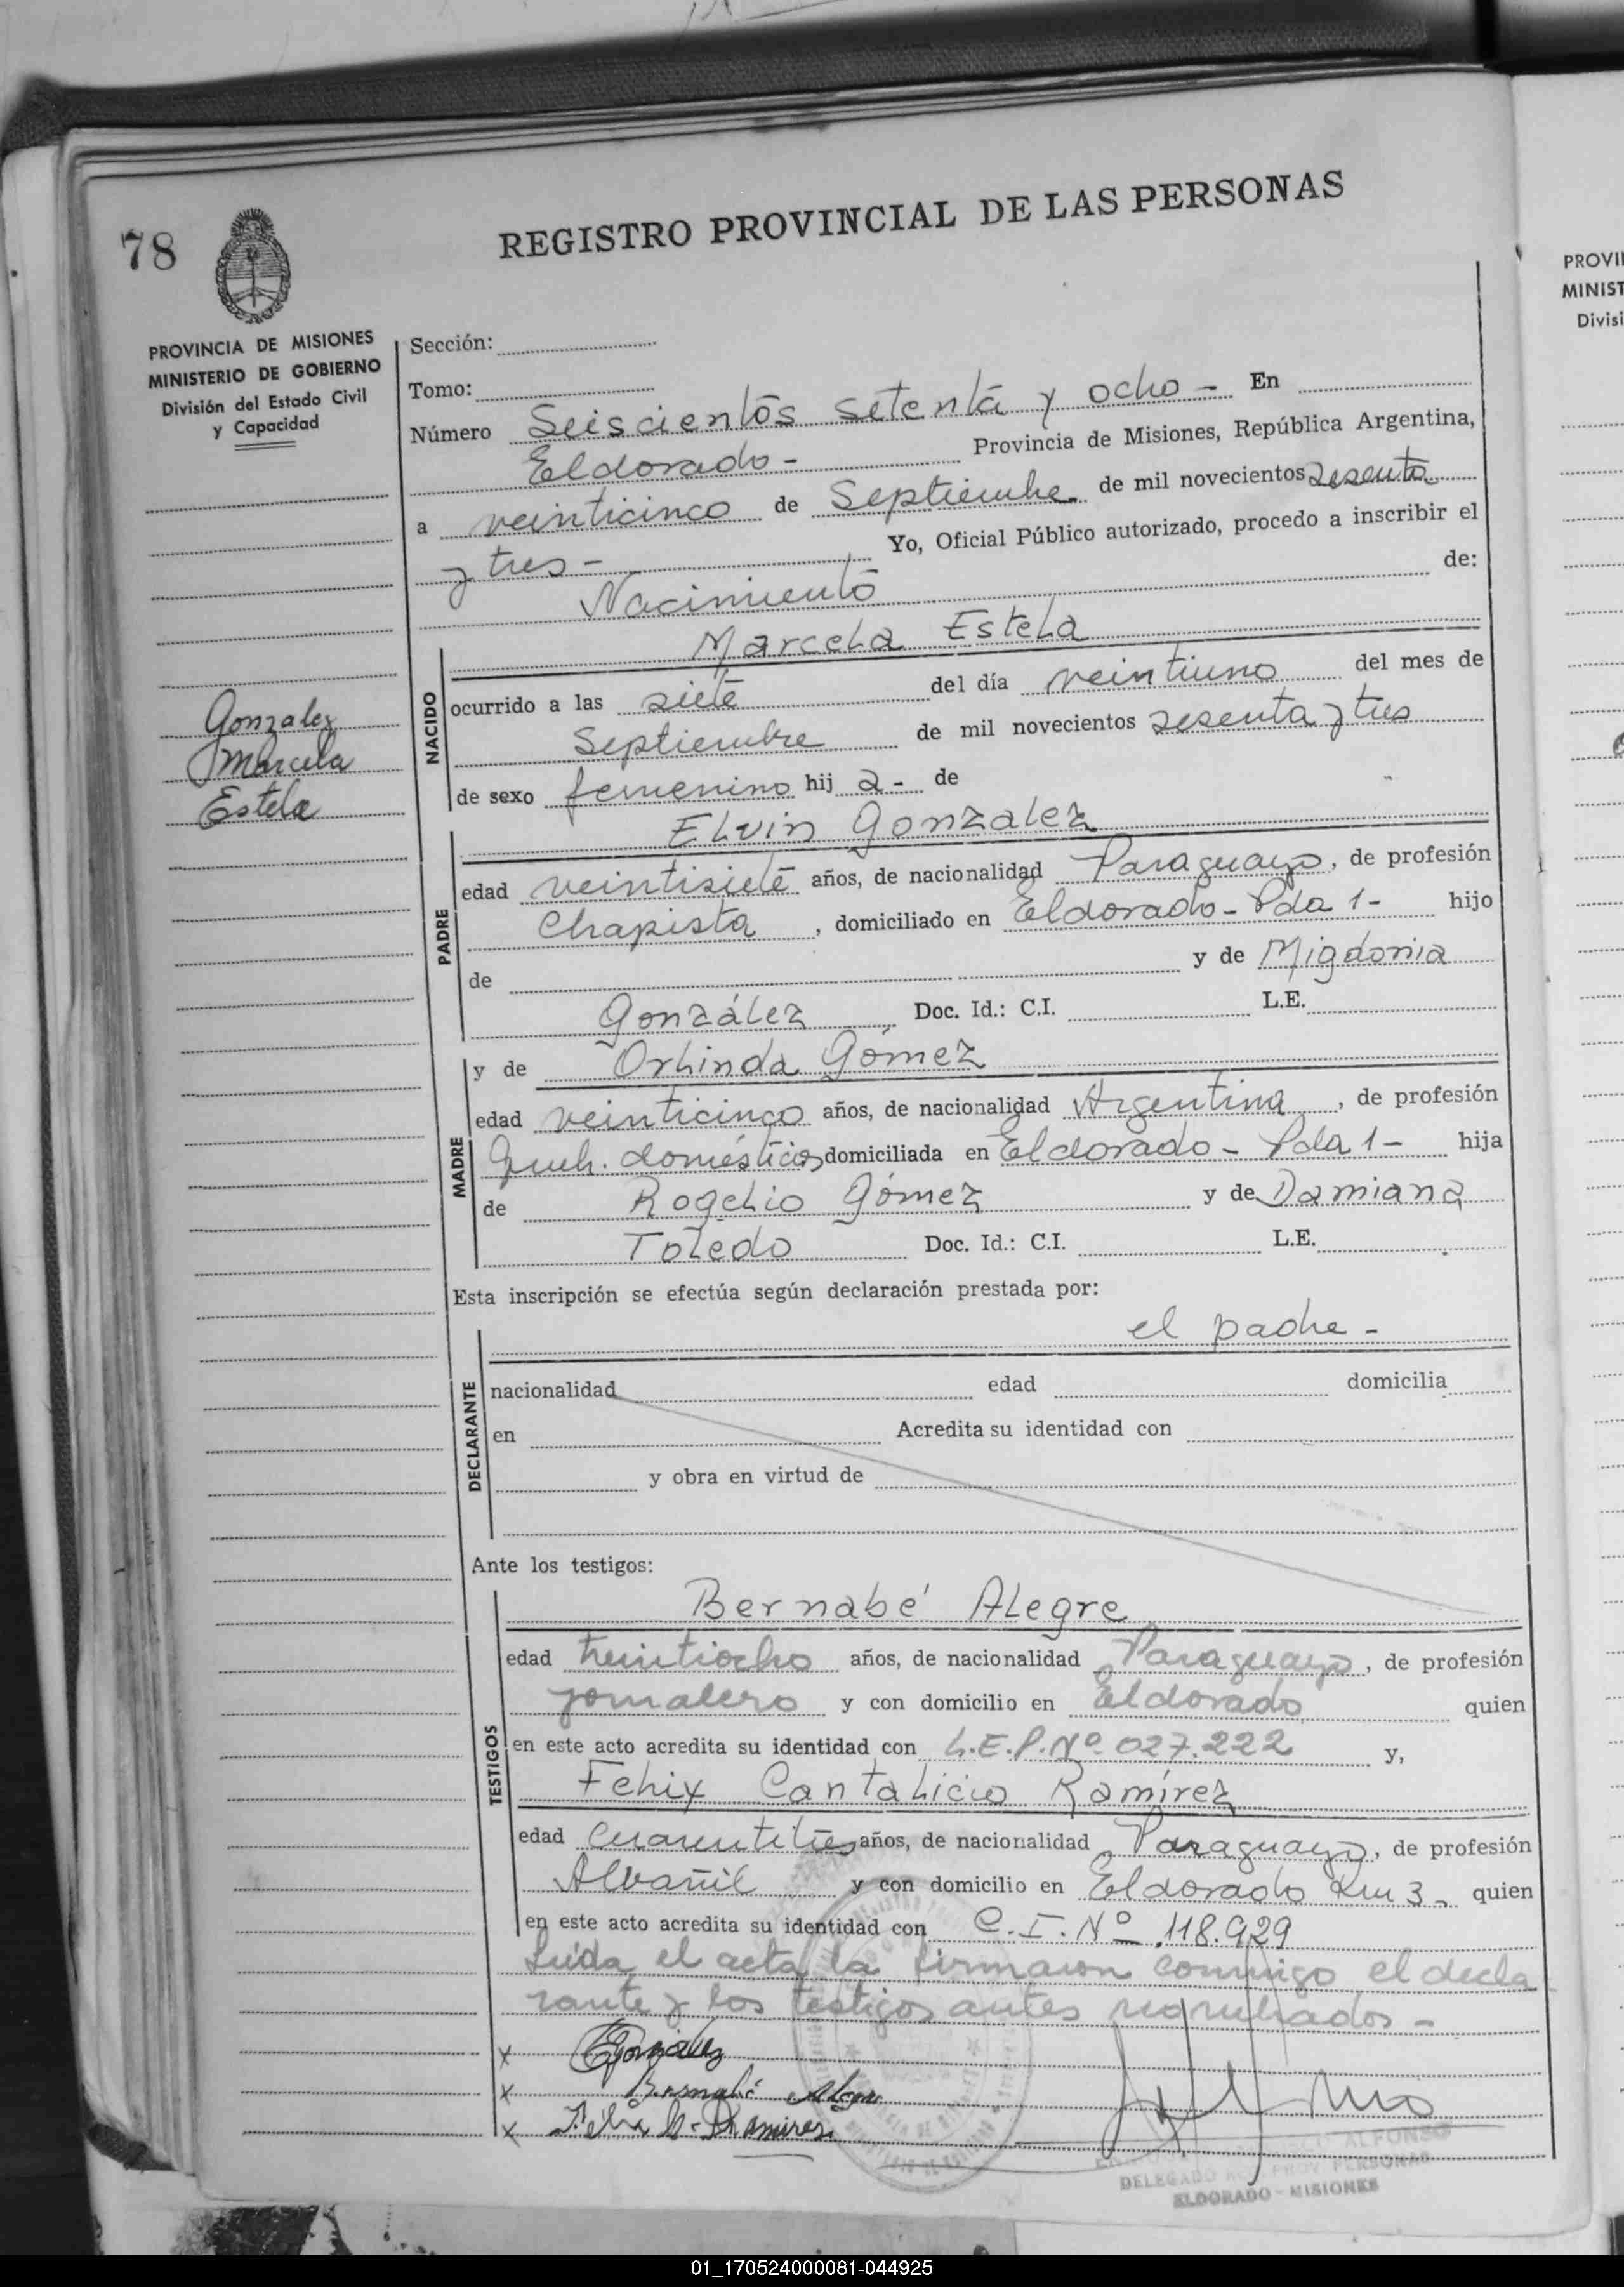 78
REGISTRO PROVINCIAL DE LAS PERSONAS
PROVINCIA DE MISIONES
MINISTERIO DE GOBIERNO
División del Estado Civil
y Capacidad
Gonzalez
Marcela
Estela
Sección:
Tomo:
Número Seiscientos setenta y ocho - En
Eldorado - Provincia de Misiones, República Argentina,
a veinticinco de Septiembre de mil novecientos sesenta
y tres - Yo, Oficial Público autorizado, procedo a inscribir el
Nacimiento de:
NACIDO
Marcela Estela
ocurrido a las siete del día veintiuno del mes de
Septiembre de mil novecientos sesenta y tres
de sexo femenino hij a - de
PADRE
Elvin Gonzalez
edad veintisiete años, de nacionalidad Paraguayo, de profesión
Chapista, domiciliado en Eldorado - Pda 1 - hijo
de y de Migdonia
González Doc. Id.: C.I. L.E.
MADRE
y de Orlinda Gómez
edad veinticinco años, de nacionalidad Argentina, de profesión
Queh. domésticos domiciliada en Eldorado - Pda 1 - hija
de Rogelio Gómez y de Damiana
Toledo Doc. Id.: C.I. L.E.
Esta inscripción se efectúa según declaración prestada por:
el padre -
DECLARANTE
nacionalidad edad domicilia
en Acredita su identidad con
y obra en virtud de
Ante los testigos:
TESTIGOS
Bernabé Alegre
edad treintiocho años, de nacionalidad Paraguayo, de profesión
jornalero y con domicilio en Eldorado quien
en este acto acredita su identidad con L.E.P. Nº 027.222 y,
Felix Cantalicio Ramírez
edad cuarentitres años, de nacionalidad Paraguayo, de profesión
Albañil y con domicilio en Eldorado Km 3 - quien
en este acto acredita su identidad con C.I. Nº 118.929
Leída el acta la firmaron conmigo el decla
rante y los testigos antes nombrados -
x EGonzalez
x Bernabé Alegre
x Felix C. Ramirez
ALFONSO
DELEGADO REG. PROV. PERSONAS
ELDORADO - MISIONES
PROVI
MINIST
Divisi
01_170524000081-044925